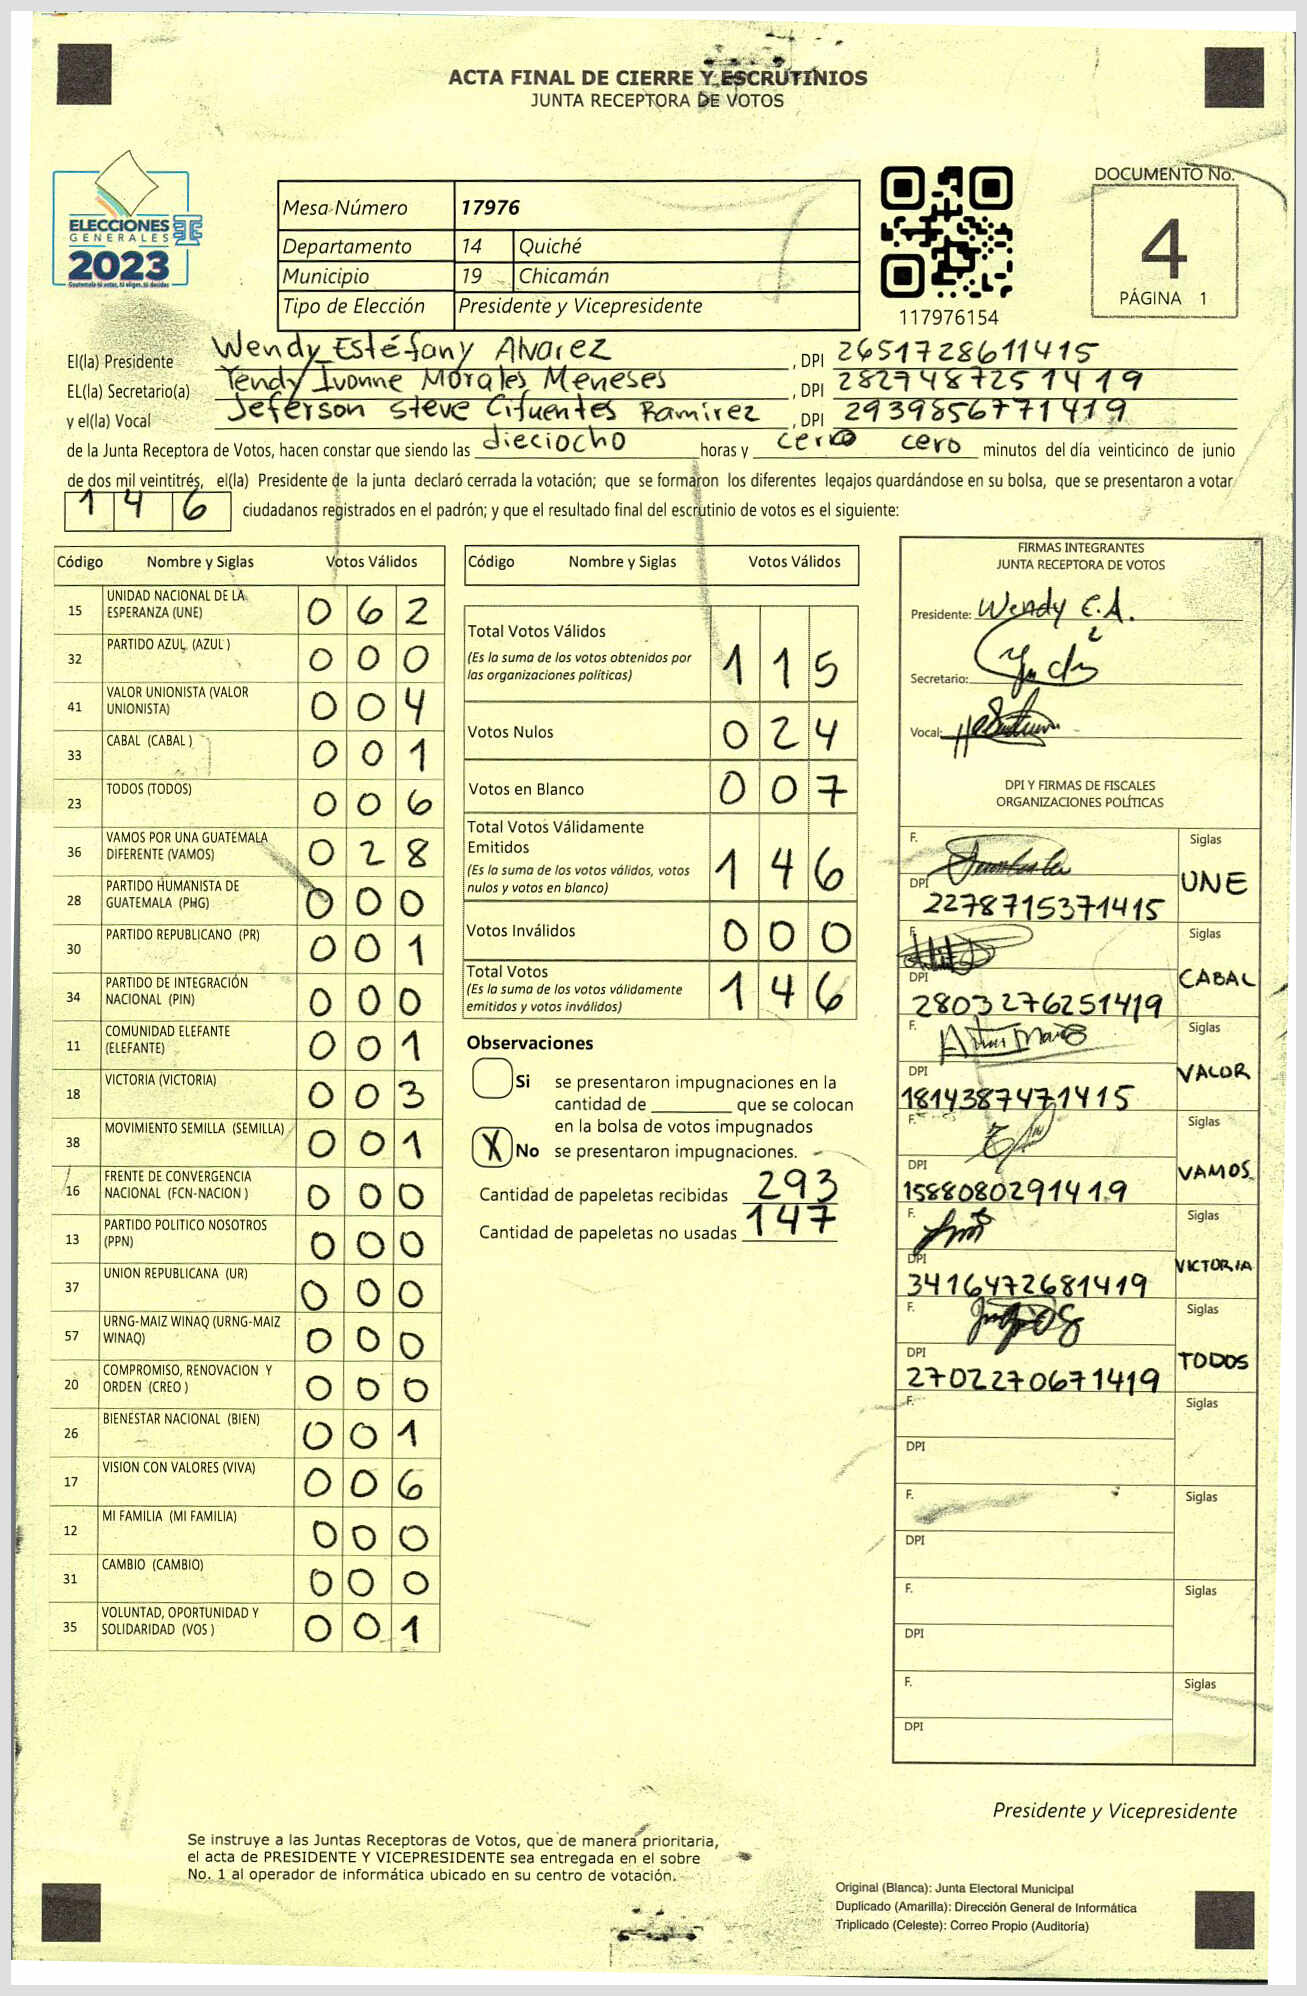 ACTA FINAL DE CIERRE Y ESCRUTINIOS
JUNTA RECEPTORA DE VOTOS
ELECCIONES
GENERALES
2023
Guatemala tú votas, tú eliges, tú decides
Mesa Número 17976
Departamento 14 Quiché
Municipio 19 Chicamán
Tipo de Elección Presidente y Vicepresidente
117976154
DOCUMENTO No.
4
PÁGINA 1
El(la) Presidente Wendy Estéfany Alvarez , DPI 2651728611415
EL(la) Secretario(a) Yendy Ivonne Morales Meneses , DPI 2827487251419
y el(la) Vocal Jeferson Steve Cifuentes Ramirez , DPI 2939856771419
de la Junta Receptora de Votos, hacen constar que siendo las dieciocho horas y cero cero minutos del día veinticinco de junio
de dos mil veintitrés, el(la) Presidente de la junta declaró cerrada la votación; que se formaron los diferentes legajos quardándose en su bolsa, que se presentaron a votar
146 ciudadanos registrados en el padrón; y que el resultado final del escrutinio de votos es el siguiente:
Código Nombre y Siglas Votos Válidos
15 UNIDAD NACIONAL DE LA ESPERANZA (UNE) 062
32 PARTIDO AZUL (AZUL ) 000
41 VALOR UNIONISTA (VALOR UNIONISTA) 004
33 CABAL (CABAL ) 001
23 TODOS (TODOS) 006
36 VAMOS POR UNA GUATEMALA DIFERENTE (VAMOS) 028
28 PARTIDO HUMANISTA DE GUATEMALA (PHG) 000
30 PARTIDO REPUBLICANO (PR) 001
34 PARTIDO DE INTEGRACIÓN NACIONAL (PIN) 000
11 COMUNIDAD ELEFANTE (ELEFANTE) 001
18 VICTORIA (VICTORIA) 003
38 MOVIMIENTO SEMILLA (SEMILLA) 001
16 FRENTE DE CONVERGENCIA NACIONAL (FCN-NACION ) 000
13 PARTIDO POLITICO NOSOTROS (PPN) 000
37 UNION REPUBLICANA (UR) 000
57 URNG-MAIZ WINAQ (URNG-MAIZ WINAQ) 000
20 COMPROMISO, RENOVACION Y ORDEN (CREO ) 000
26 BIENESTAR NACIONAL (BIEN) 001
17 VISION CON VALORES (VIVA) 006
12 MI FAMILIA (MI FAMILIA) 000
31 CAMBIO (CAMBIO) 000
35 VOLUNTAD, OPORTUNIDAD Y SOLIDARIDAD (VOS ) 001
Código Nombre y Siglas Votos Válidos
Total Votos Válidos 115
(Es la suma de los votos obtenidos por
las organizaciones políticas)
Votos Nulos 024
Votos en Blanco 007
Total Votos Válidamente
Emitidos 146
(Es la suma de los votos válidos, votos
nulos y votos en blanco)
Votos Inválidos 000
Total Votos 146
(Es la suma de los votos válidamente
emitidos y votos inválidos)
Observaciones
Si se presentaron impugnaciones en la
cantidad de ________ que se colocan
en la bolsa de votos impugnados
X No se presentaron impugnaciones.
Cantidad de papeletas recibidas 293
Cantidad de papeletas no usadas 147
FIRMAS INTEGRANTES
JUNTA RECEPTORA DE VOTOS
Presidente: Wendy E.A.
Secretario:
Vocal:
DPI Y FIRMAS DE FISCALES
ORGANIZACIONES POLÍTICAS
F. Siglas
DPI 2278715371415 UNE
F. Siglas
DPI 2803276251419 CABAL
F. Siglas
DPI 1814387471415 VALOR
F. Siglas
DPI 1588080291419 VAMOS
F. Siglas
DPI 3416472681419 VICTORIA
F. Siglas
DPI 2702270671419 TODOS
F. Siglas
DPI
F. Siglas
DPI
F. Siglas
DPI
F. Siglas
DPI
Presidente y Vicepresidente
Se instruye a las Juntas Receptoras de Votos, que de manera prioritaria,
el acta de PRESIDENTE Y VICEPRESIDENTE sea entregada en el sobre
No. 1 al operador de informática ubicado en su centro de votación.
Original (Blanca): Junta Electoral Municipal
Duplicado (Amarilla): Dirección General de Informática
Triplicado (Celeste): Correo Propio (Auditoría)